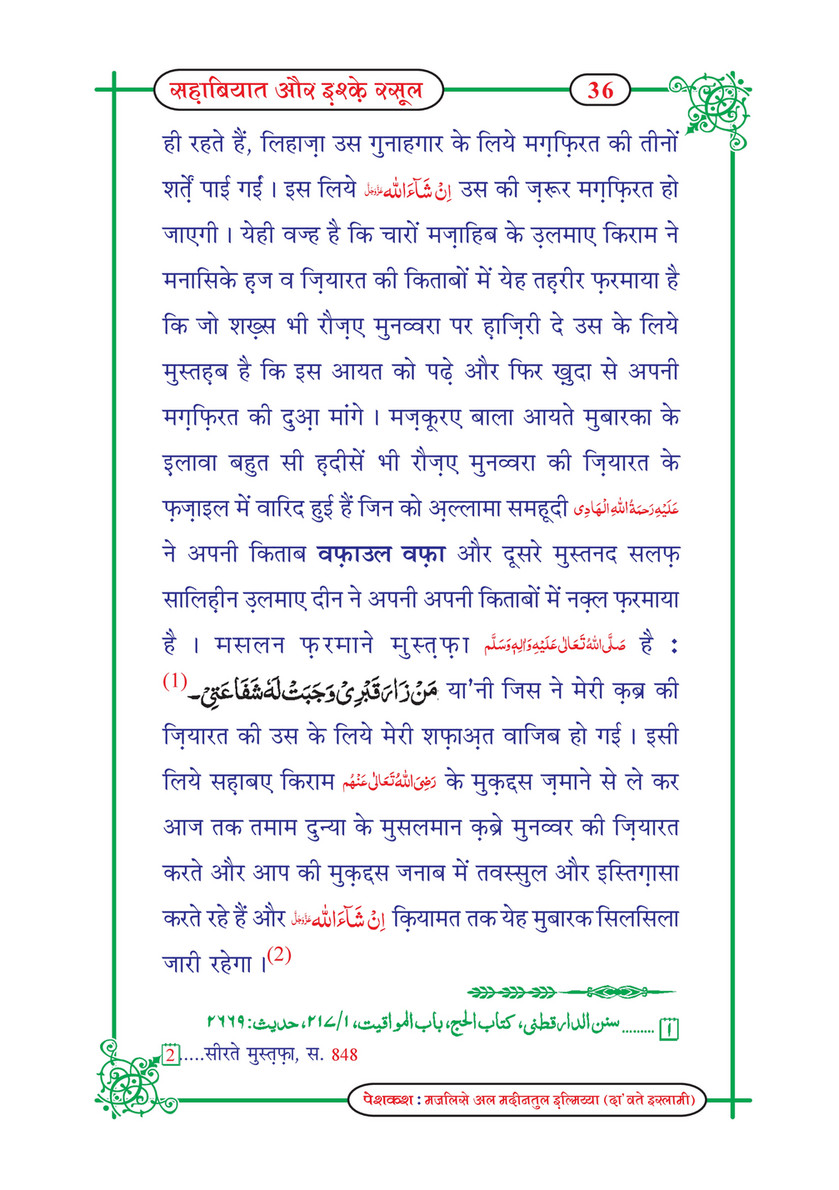 सह़ाबियात और इ़श्क़े रसूल
36
ही रहते हैं, लिहाज़ा उस गुनाहगार के लिये मग़फ़िरत की तीनों
शर्त़ें पाई गईं । इस लिये اِنْ شَآءَاللّٰه عَزَّوَجَلَّ उस की ज़रूर मग़फ़िरत हो
जाएगी । येही वज्ह है कि चारों मज़ाहिब के उ़लमाए किराम ने
मनासिके ह़ज व ज़ियारत की किताबों में येह तह़रीर फ़रमाया है
कि जो शख़्स भी रौज़ए मुनव्वरा पर ह़ाज़िरी दे उस के लिये
मुस्तह़ब है कि इस आयत को पढ़े और फिर ख़ुदा से अपनी
मग़फ़िरत की दुआ़ मांगे । मज़कूरए बाला आयते मुबारका के
इ़लावा बहुत सी ह़दीसें भी रौज़ए मुनव्वरा की ज़ियारत के
फ़ज़ाइल में वारिद हुई हैं जिन को अ़ल्लामा समहूदी عَلَيْهِ رَحمَةُ اللهِ الْهَادِى
ने अपनी किताब वफ़ाउल वफ़ा और दूसरे मुस्तनद सलफ़
सालिह़ीन उ़लमाए दीन ने अपनी अपनी किताबों में नक़्ल फ़रमाया
है । मसलन फ़रमाने मुस्त़फ़ा صَلَّى اللهُ تَعَالٰى عَلَيْهِ وَاٰلِهٖ وَسَلَّم है :
مَنْ زَارَ قَبْرِىْ وَجَبَتْ لَهٗ شَفَاعَتِىْ۔ (1) या'नी जिस ने मेरी क़ब्र की
ज़ियारत की उस के लिये मेरी शफ़ाअ़त वाजिब हो गई । इसी
लिये सह़ाबए किराम رَضِىَ اللهُ تَعَالٰى عَنْهُم के मुक़द्दस ज़माने से ले कर
आज तक तमाम दुन्या के मुसलमान क़ब्रे मुनव्वर की ज़ियारत
करते और आप की मुक़द्दस जनाब में तवस्सुल और इस्तिग़ासा
करते रहे हैं और اِنْ شَآءَاللّٰه عَزَّوَجَلَّ क़ियामत तक येह मुबारक सिलसिला
जारी रहेगा ।(2)
١ ......... سنن الدارقطنى، كتاب الحج، باب المواقيت، ١/٢١٧، حديث: ٢٦٦٩
2 .....सीरते मुस्त़फ़ा, स. 848
पेशकश : मजलिसे अल मदीनतुल इ़ल्मिय्या (दा'वते इस्लामी)